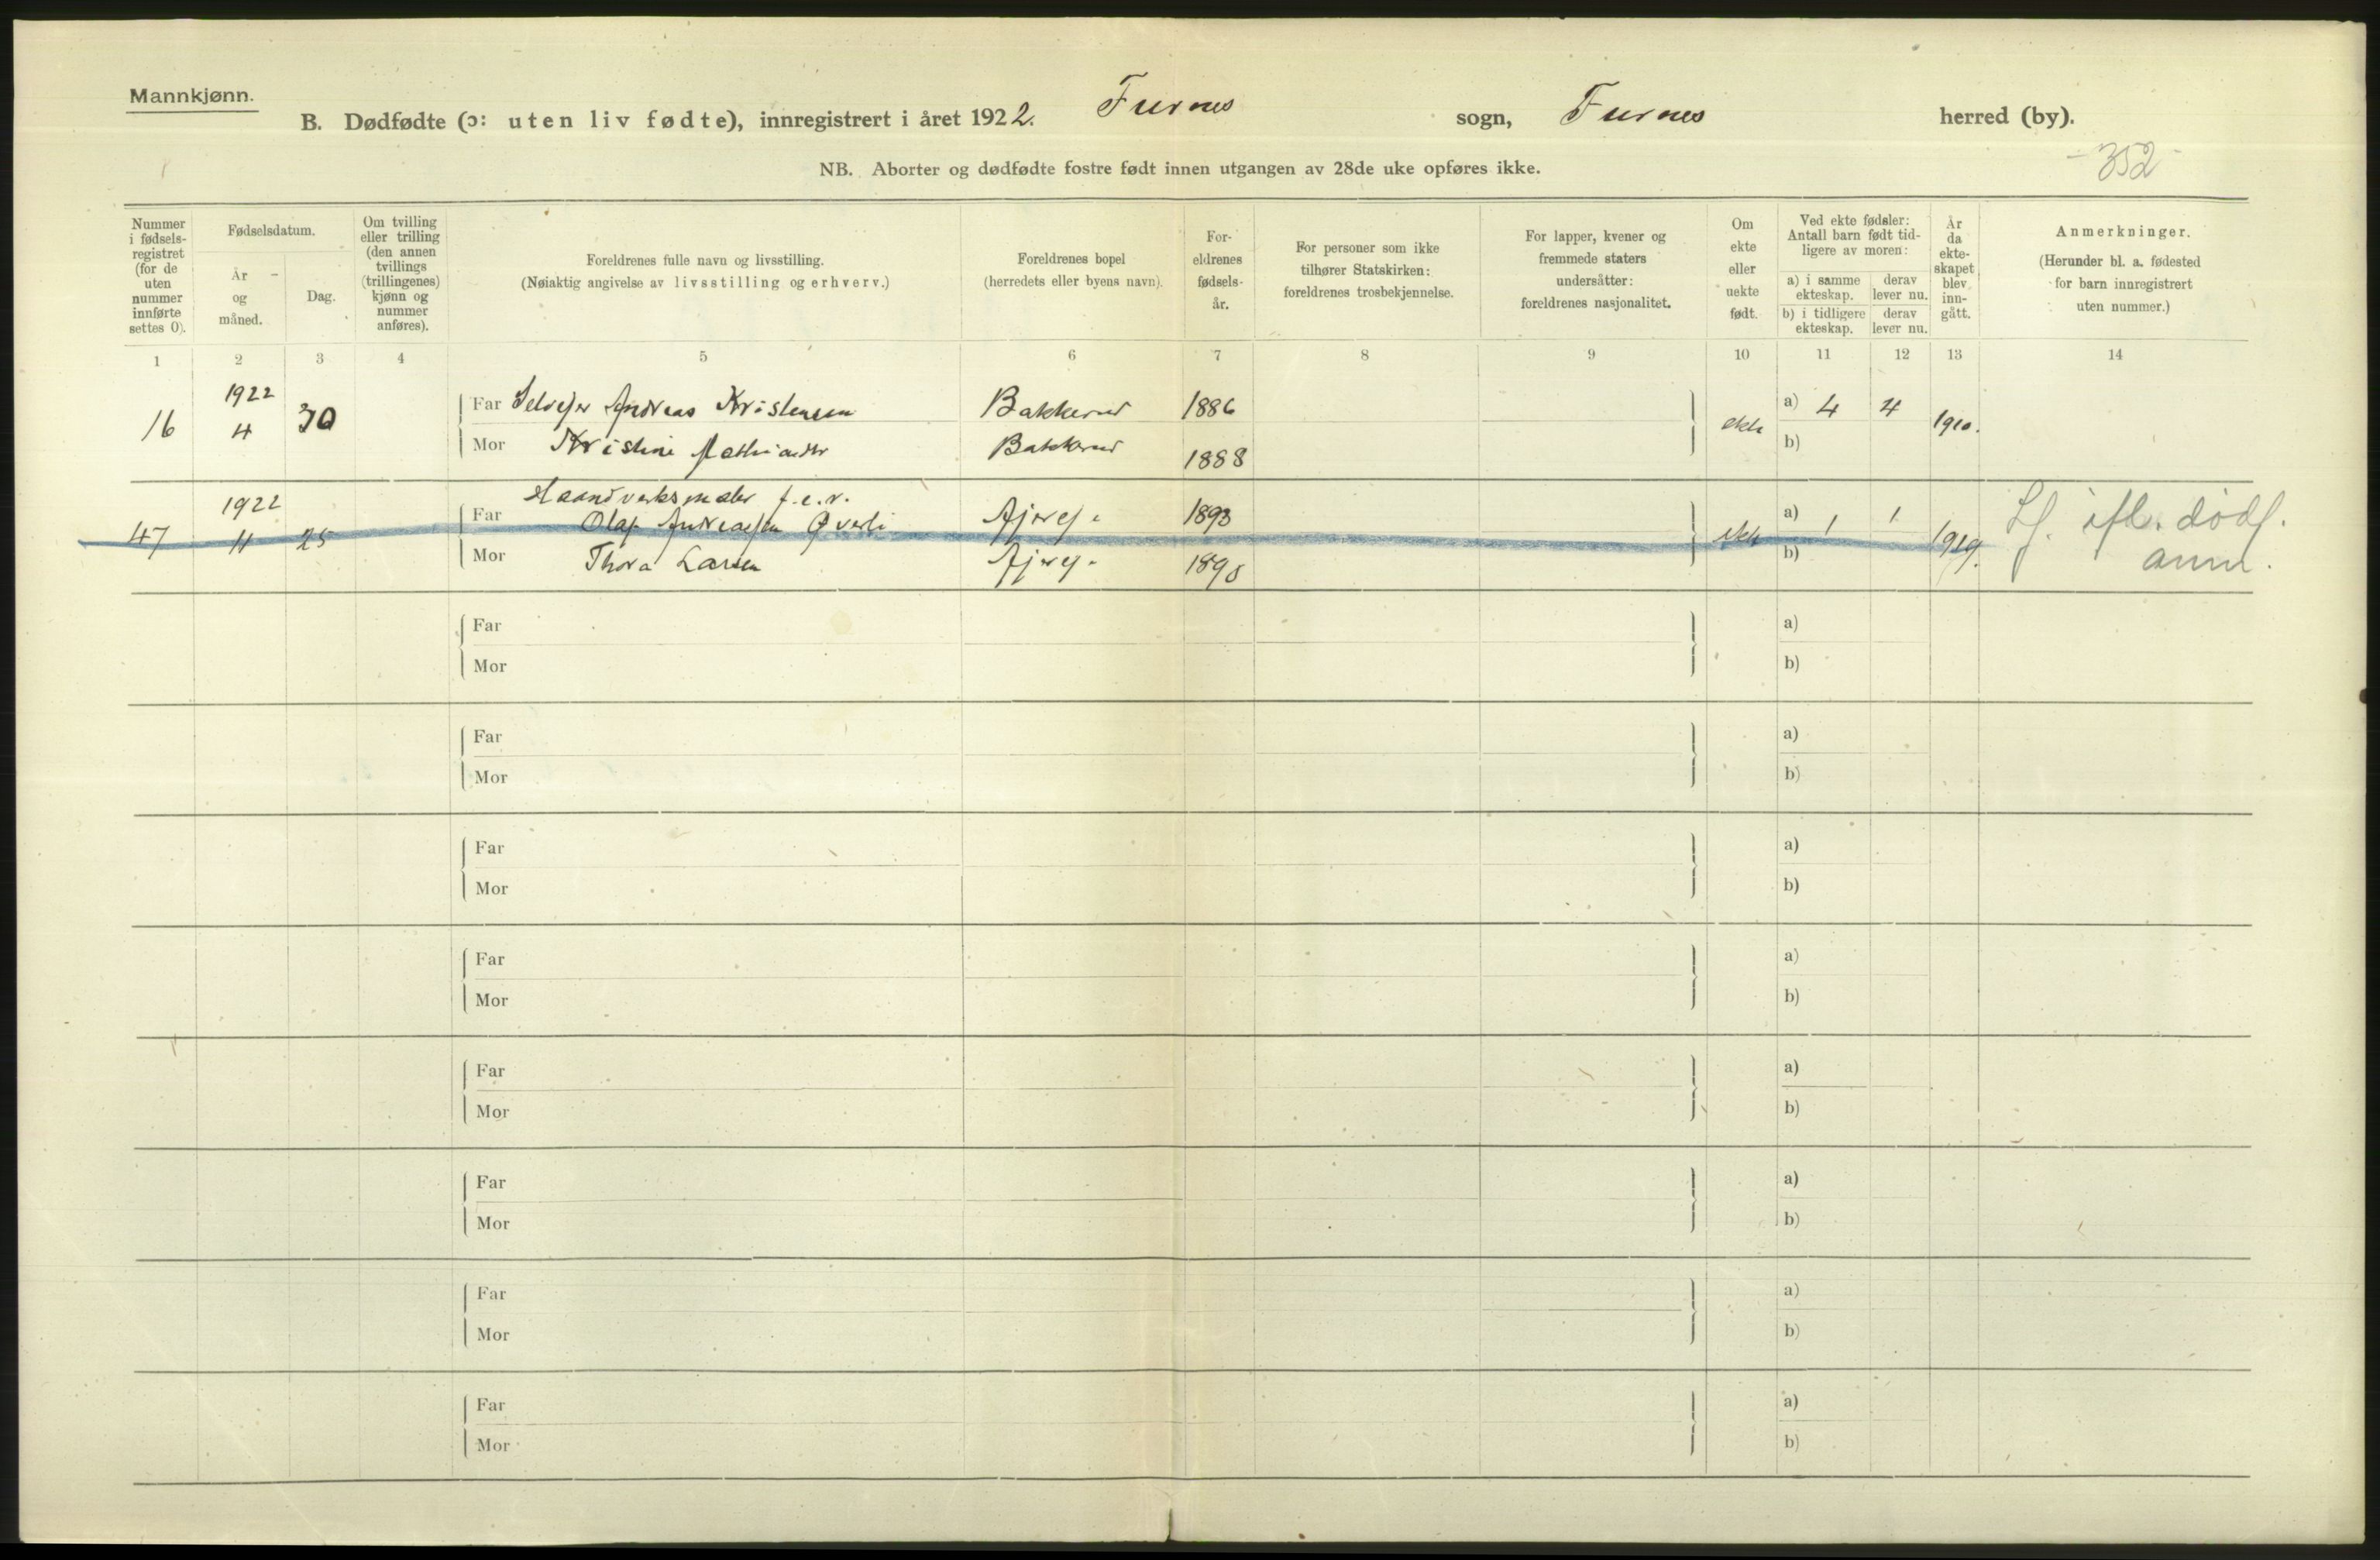 Mannkjønn.
B. Dødfødte (ɔ: uten liv fødte), innregistrert i året 1922. Furnes sogn, Furnes herred (by).
NB. Aborter og dødfødte fostre født innen utgangen av 28de uke opføres ikke.
-352-
Nummer
i fødsels-
registret
(for de
uten
nummer
innførte
settes 0).
Fødselsdatum.
År
og
måned.
Dag.
Om tvilling
eller trilling
(den annen
tvillings
(trillingenes)
kjønn og
nummer
anføres).
Foreldrenes fulle navn og livsstilling.
(Nøiaktig angivelse av livsstilling og erhverv.)
Foreldrenes bopel
(herredets eller byens navn).
For-
eldrenes
fødsels-
år.
For personer som ikke
tilhører Statskirken:
foreldrenes trosbekjennelse.
For lapper, kvener og
fremmede staters
undersåtter:
foreldrenes nasjonalitet.
Om
ekte
eller
uekte
født.
Ved ekte fødsler:
Antall barn født tid-
ligere av moren:
a) i samme
ekteskap.
derav
lever nu.
b) i tidligere
ekteskap.
derav
lever nu.
År
da
ekte-
skapet
blev
inn-
gått.
Anmerkninger.
(Herunder bl. a. fødested
for barn innregistrert
uten nummer.)
1 2 3 4 5 6 7 8 9 10 11 12 13 14
16 1922 4 30
Far Selveier Andreas Kristensen Bakkerud 1886
Mor Kristine Bakkerud 1888
ekte a) 4 4 1910.
b)
47 1922 11 25
Haandverksmaler f.e.r.
Far Olaf Andreassen Øverli 1893
Mor Thora Larsen
ekte a) 1 1 1919.
b)
Lf. ifl. dødf.
anm.
Far a)
Mor b)
Far a)
Mor b)
Far a)
Mor b)
Far a)
Mor b)
Far a)
Mor b)
Far a)
Mor b)
Far a)
Mor b)
Far a)
Mor b)